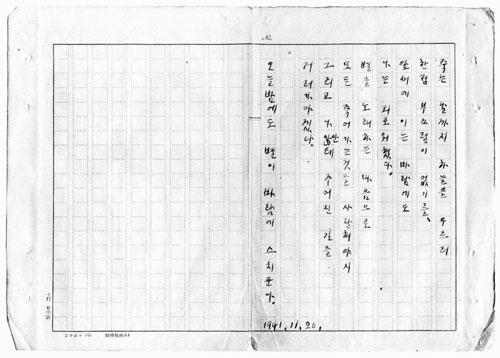 No.
죽는 날까지 하늘을 우르러
한점 부끄럼이 없기를,
잎새에 이는 바람에도
나는 괴로워했다.
별을 노래하는 마음으로
모든 죽어가는것을 사랑해야지
그리고 나안테 주어진 길을
거러가야겠다.
오늘밤에도 별이 바람에 스치운다.
1941.11.20.